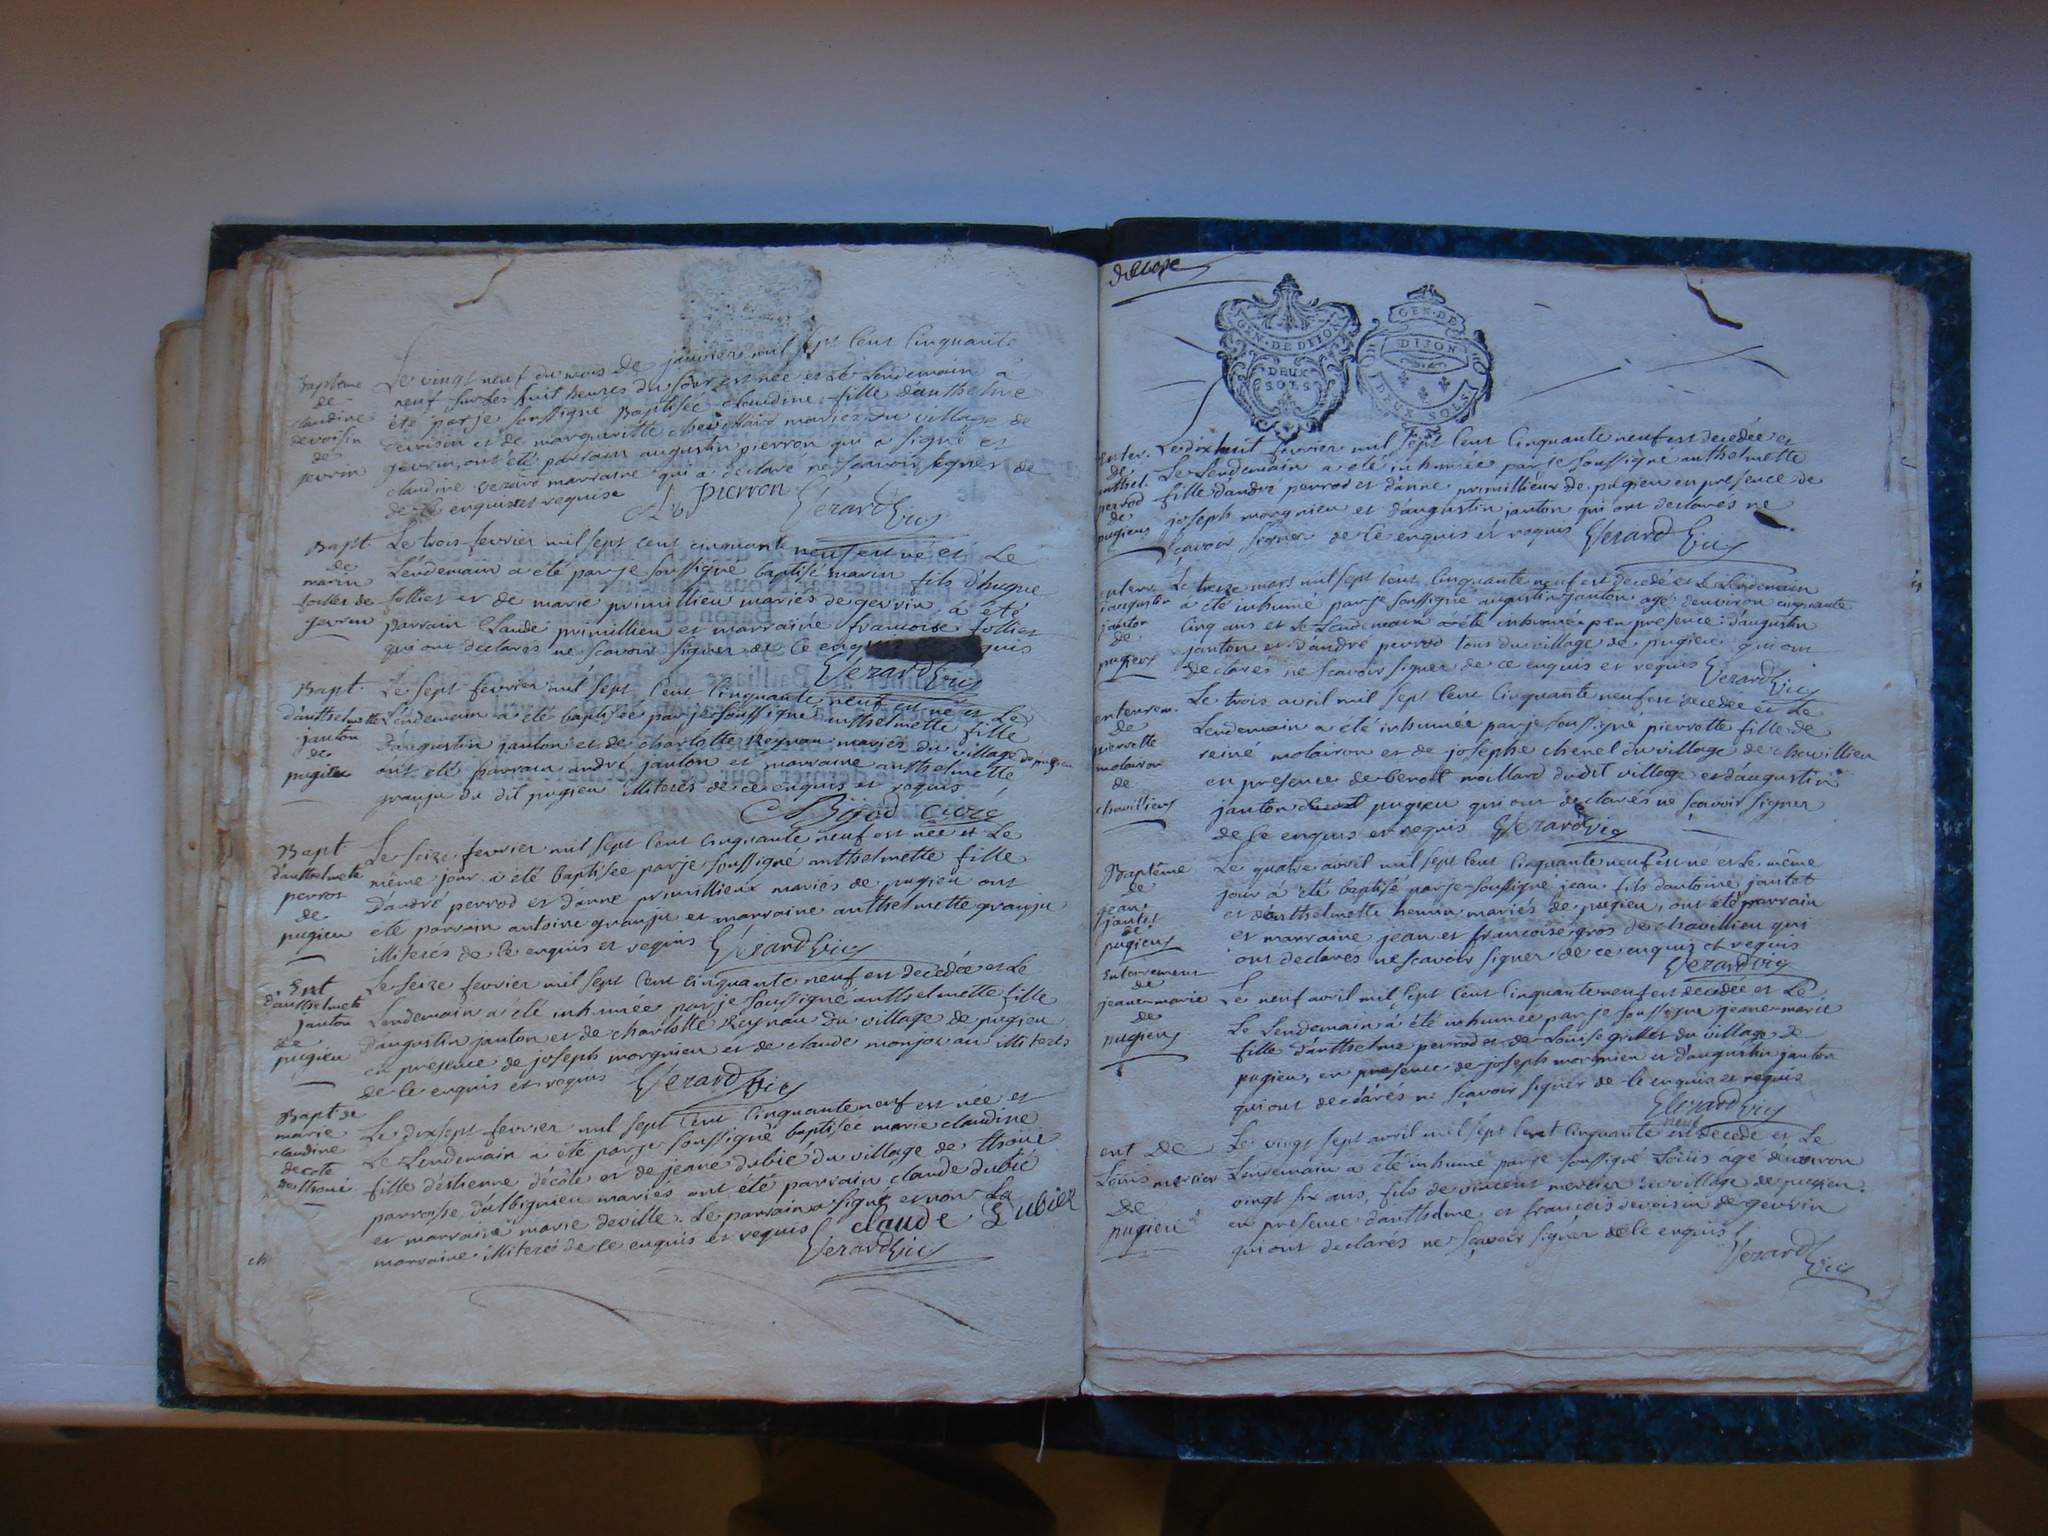 Baptême
de
claudine
devoisin
de
gevrin
Le vingt neuf du mois de janvier mil sept cent cinquante
neuf sur les huit heures du soir est née et le lendemain à
été par je soussigné Baptisée claudine fille d'anthelme
devoisin et de margueritte chevillard mariés du village de
gevrin, ont été parrain augustin pierron qui a signé et
claudine verare marraine qui a déclaré ne scavoir signer de
de ce enquise et requise
pierron Verard Vic
Bapt
de
marin
tollet de
gevrin
Le trois fevrier mil sept cent cinquante neuf est né et Le
Lendemain a été par je soussigné baptisé marin fils d'hugue
tolliet et de marie primillieu mariés de gevrin, a été
parrain Claude primillieu et marraine francoise tollier
qui ont declarés ne scavoir signer de ce enquis
Verard Vic
Bapt
d'anthelmette
janton
de
pugieu
Le sept fevrier mil sept cent cinquante neuf est né et Le
Lendemain a été baptisée par je soussigné anthelmette fille
d'augustin janton et de charlotte Reynau mariés du village de pugieu
ont été parrain andré janton et marraine anthelmette
granju du dit pugieu illiterés de ce enquis et requis
Curé
Bapt
d'anthelmette
perrot
de
pugieu
Le seize fevrier mil sept cent cinquante neuf est née et Le
même jour a été baptisée par je soussigné anthelmette fille
d'andré perrod et d'anne primillieux mariés de pugieu ont
été parrain antoine granju et marraine anthelmette granju
illiterés de ce enquis et requis Verard Vic
Ent
d'anthelmete
janton
de
pugieu
Le seize fevrier mil sept cent cinquante neuf est decedée et Le
Lendemain a été inhumée par je soussigné anthelmette fille
d'augustin janton et de charlotte Reynau du village de pugieu
en presence de joseph morgnieu et de claude monjou au illiterés
de ce enquis et requis Verard Vic
Bapt de
marie
claudine
decote
de thoui
Le dixsept fevrier mil sept cent cinquante neuf est née et
Le Lendemain a été par je soussigné baptisée marie claudine
fille d'estienne décôte et de jeane dubié du village de thoui
parroisse d'albignieu mariés ont été parrain claude dubié
et marraine marie deville. Le parrain a signé et non La
marraine illiterée de ce enquis et requis claude Dubiez
Verard Vic
GEN·DE DIJON
DEUX
SOLS
GEN·DE
DIJON
DEUX SOLS
enter.
de
anthel.
perrod
de
pugieu
Le dixhuit fevrier mil sept cent cinquante neuf est decedée et
Le Lendemain a été inhumée par je soussigné anthelmette
fille d'andré perrod et d'anne primillieux de pugieu en présence de
joseph morgnieu et d'augustin janton qui ont declarés ne
scavoir signer de ce enquis et requis Verard Vic
enterr.
d'augustin
janton
de
pugieu
Le treize mars mil sept cent cinquante neuf est decedé et Le Lendemain
a été inhumé par je soussigné augustin janton agé d'environ cinquante
cinq ans et Le Lendemain a été inhumé en presence d'augustin
janton et d'andré perrod tous du village de pugieu qui ont
declarés ne scavoir signer de ce enquis et requis Verard Vic
enterrem.
de
pierrette
molairon
de
chavillieu
Le trois avril mil sept cent cinquante neuf est decedée et Le
Lendemain a été inhumée par je soussigné pierrette fille de
reiné molairon et de josephe chenel du village de chavillieu
en presence de benoit maillard dudit village et d'augustin
janton pugieu qui ont declarés ne scavoir signer
de ce enquis et requis Verard Vic
Baptême
de
jean
jantet
de
pugieu
Le quatre avril mil sept cent cinquante neuf est né et Le même
jour à été baptisé par je soussigné jean fils d'antoine jantet
et d'anthelmette henin mariés de pugieu, ont été parrain
et marraine jean et francoise gros de chavillieu qui
ont declares ne scavoir signer de ce enquis et requis
Verard Vic
Enterrement
de
jeane marie
de
pugieu
Le neuf avril mil sept cent cinquante neuf est decedée et Le
Le Lendemain à été inhumée par je soussigné jeane marie
fille d'anthelme perrod et de Louise grillet du village de
pugieu, en presence de joseph morgnieu et d'augustin janton
qui ont declarés ne scavoir signer de ce enquis et requis
Verard Vic
ent de
Loüis mercier
de
pugieu
Le vingt sept avril mil sept cent cinquante neuf est decedé et Le
Lendemain a été inhumé par je soussigné Loüis agé d'environ
vingt six ans, fils de vincent mercier du village de pugieu.
en presence d'anthelme et francois devoisin de gevrin
qui ont declarés ne scavoir signer de ce enquis
Verard Vic